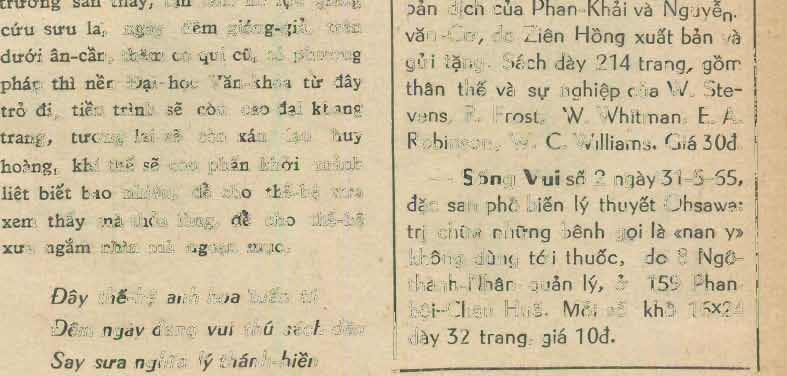 trường sẵn thầy,
cứu sưu la, ngày đêm giảng-giả, trên
dưới ân-cần, thăm có qui củ, có phương
pháp thì nền Đại-học Văn-khoa từ đây
trở đi, tiền trình sẽ còn cao đại khang
trang, tương lai sẽ còn xán lạn huy
hoàng, khí thế sẽ còn phấn khởi mãnh
liệt biết bao nhiêu, để cho thế-hệ xưa
xem thấy mà thỏa lòng, để cho thế-hệ
xưa ngắm nhìn mà ngoạn mục.
Đây thế-hệ anh hoa tuấn tú
Đêm ngày đang vui thú sách đèn
Say sưa nghĩa lý thánh-hiền
bản dịch của Phan-Khải và Nguyễn.
văn-Cơ, do Ziên Hồng xuất bản và
gửi tặng. Sách dày 214 trang, gồm
thân thế và sự nghiệp của W. Ste-
vens, R. Frost, W. Whitman, E. A.
Robinson, W. C. Williams. Giá 30đ
— Sống Vui số 2 ngày 31-5-65,
đặc san phổ biến lý thuyết Ohsawa:
trị chữa những bệnh gọi là «nan y»
không dùng tới thuốc, do Ngô-
thành-Nhân quản lý, ở 159 Phan-
bội-Châu Huế. Mỗi số khổ 16x24
dày 32 trang, giá 10đ.